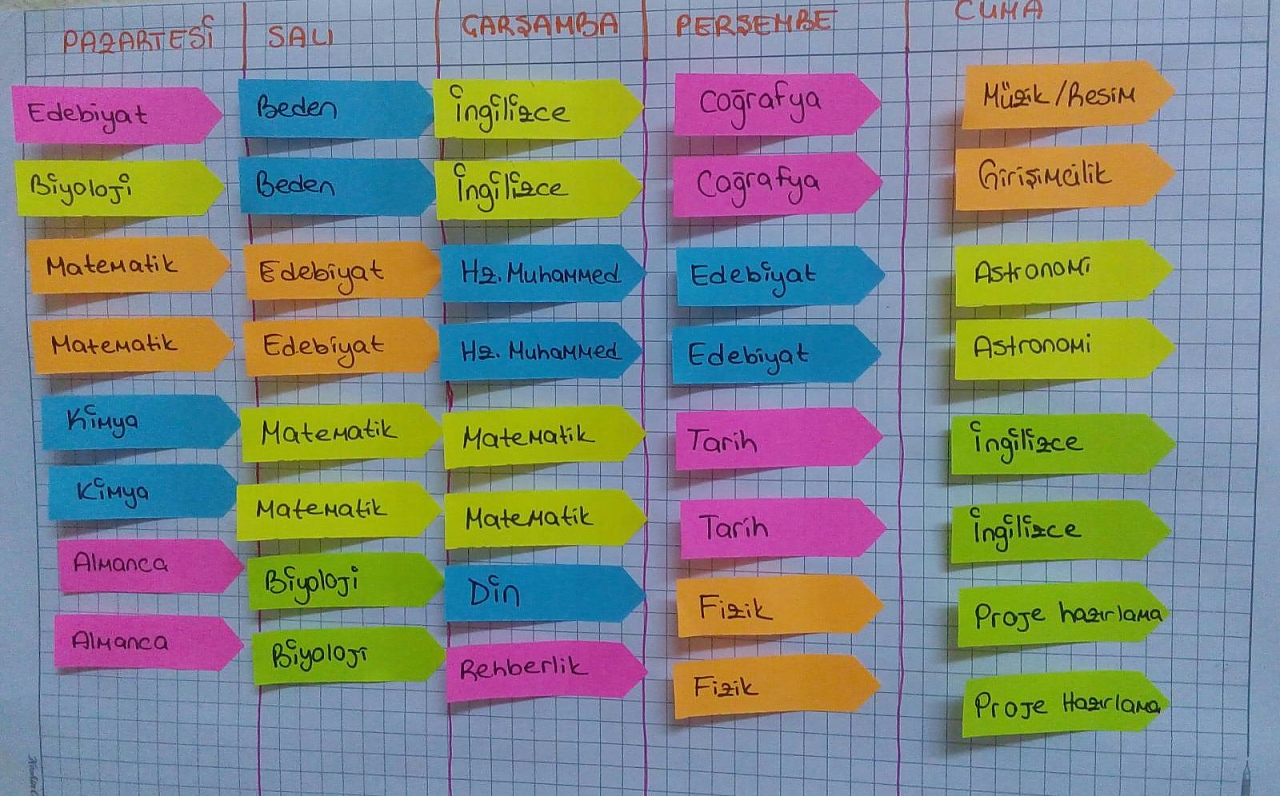 PAZARTESİ SALI ÇARŞAMBA PERŞEMBE CUMA
Edebiyat Beden İngilizce Coğrafya Müzik/Resim
Biyoloji Beden İngilizce Coğrafya Girişimcilik
Matematik Edebiyat Hz. Muhammed Edebiyat Astronomi
Matematik Edebiyat Hz. Muhammed Edebiyat Astronomi
Kimya Matematik Matematik Tarih İngilizce
Kimya Matematik Matematik Tarih İngilizce
Almanca Biyoloji Din Fizik Proje hazırlama
Almanca Biyoloji Rehberlik Fizik Proje Hazırlama